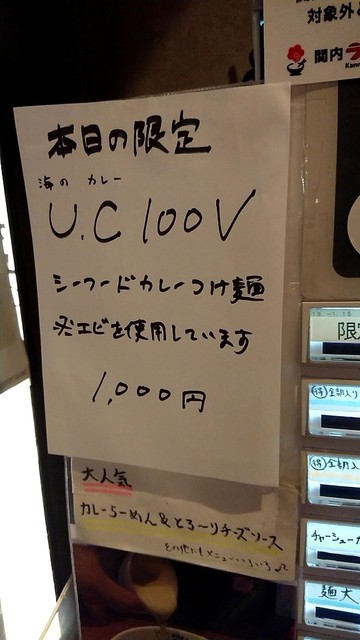 対象外
関内
本日の限定
海の カレー
U.C 100V
シーフードカレーつけ麺
※エビを使用しています
1,000円
限
得 全部入り
得 全部入
チャーシュー
麺大
大人気
カレーらーめん&とろ〜りチーズソース
その他にもメニューいろいろ♪